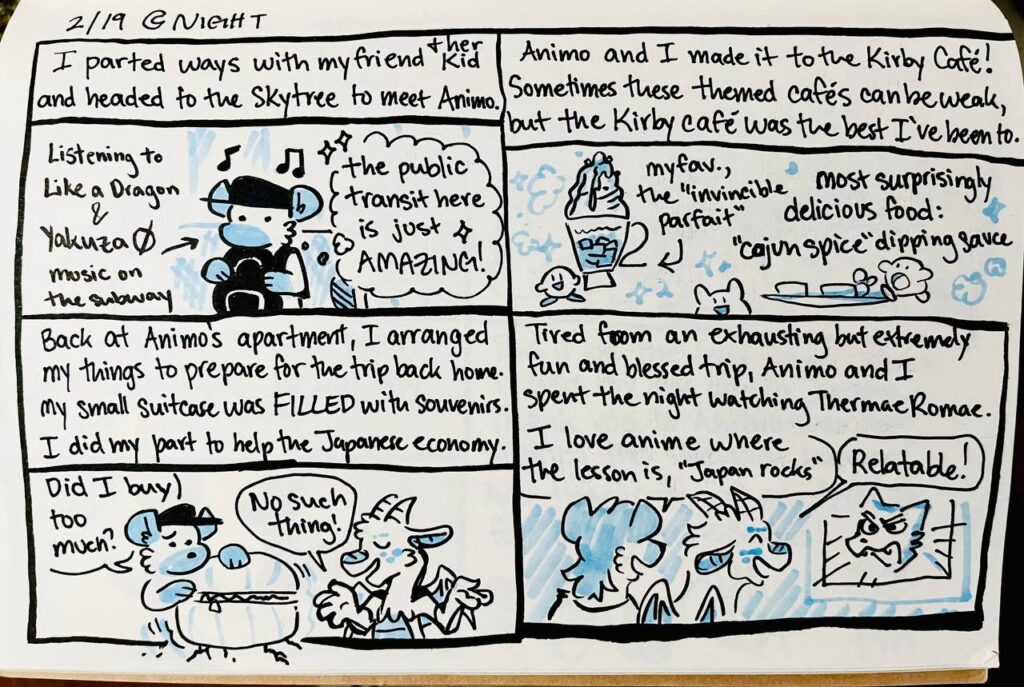 2/19 @ NIGHT
I parted ways with my friend + her Kid
and headed to the Skytree to meet Animo.
Listening to
Like a Dragon
&
Yakuza Ø
music on
the subway
the public
transit here
is just
AMAZING!
Animo and I made it to the Kirby Café!
Sometimes these themed cafés can be weak,
but the Kirby café was the best I've been to.
my fav.,
the "invincible
parfait"
most surprisingly
delicious food:
"cajun spice" dipping sauce
Back at Animo's apartment, I arranged
my things to prepare for the trip back home.
my small suitcase was FILLED with souvenirs.
I did my part to help the Japanese economy.
Did I buy
too
much?
No such
thing!
Tired from an exhausting but extremely
fun and blessed trip, Animo and I
spent the night watching Thermae Romae.
I love anime where
the lesson is, "Japan rocks"
Relatable!